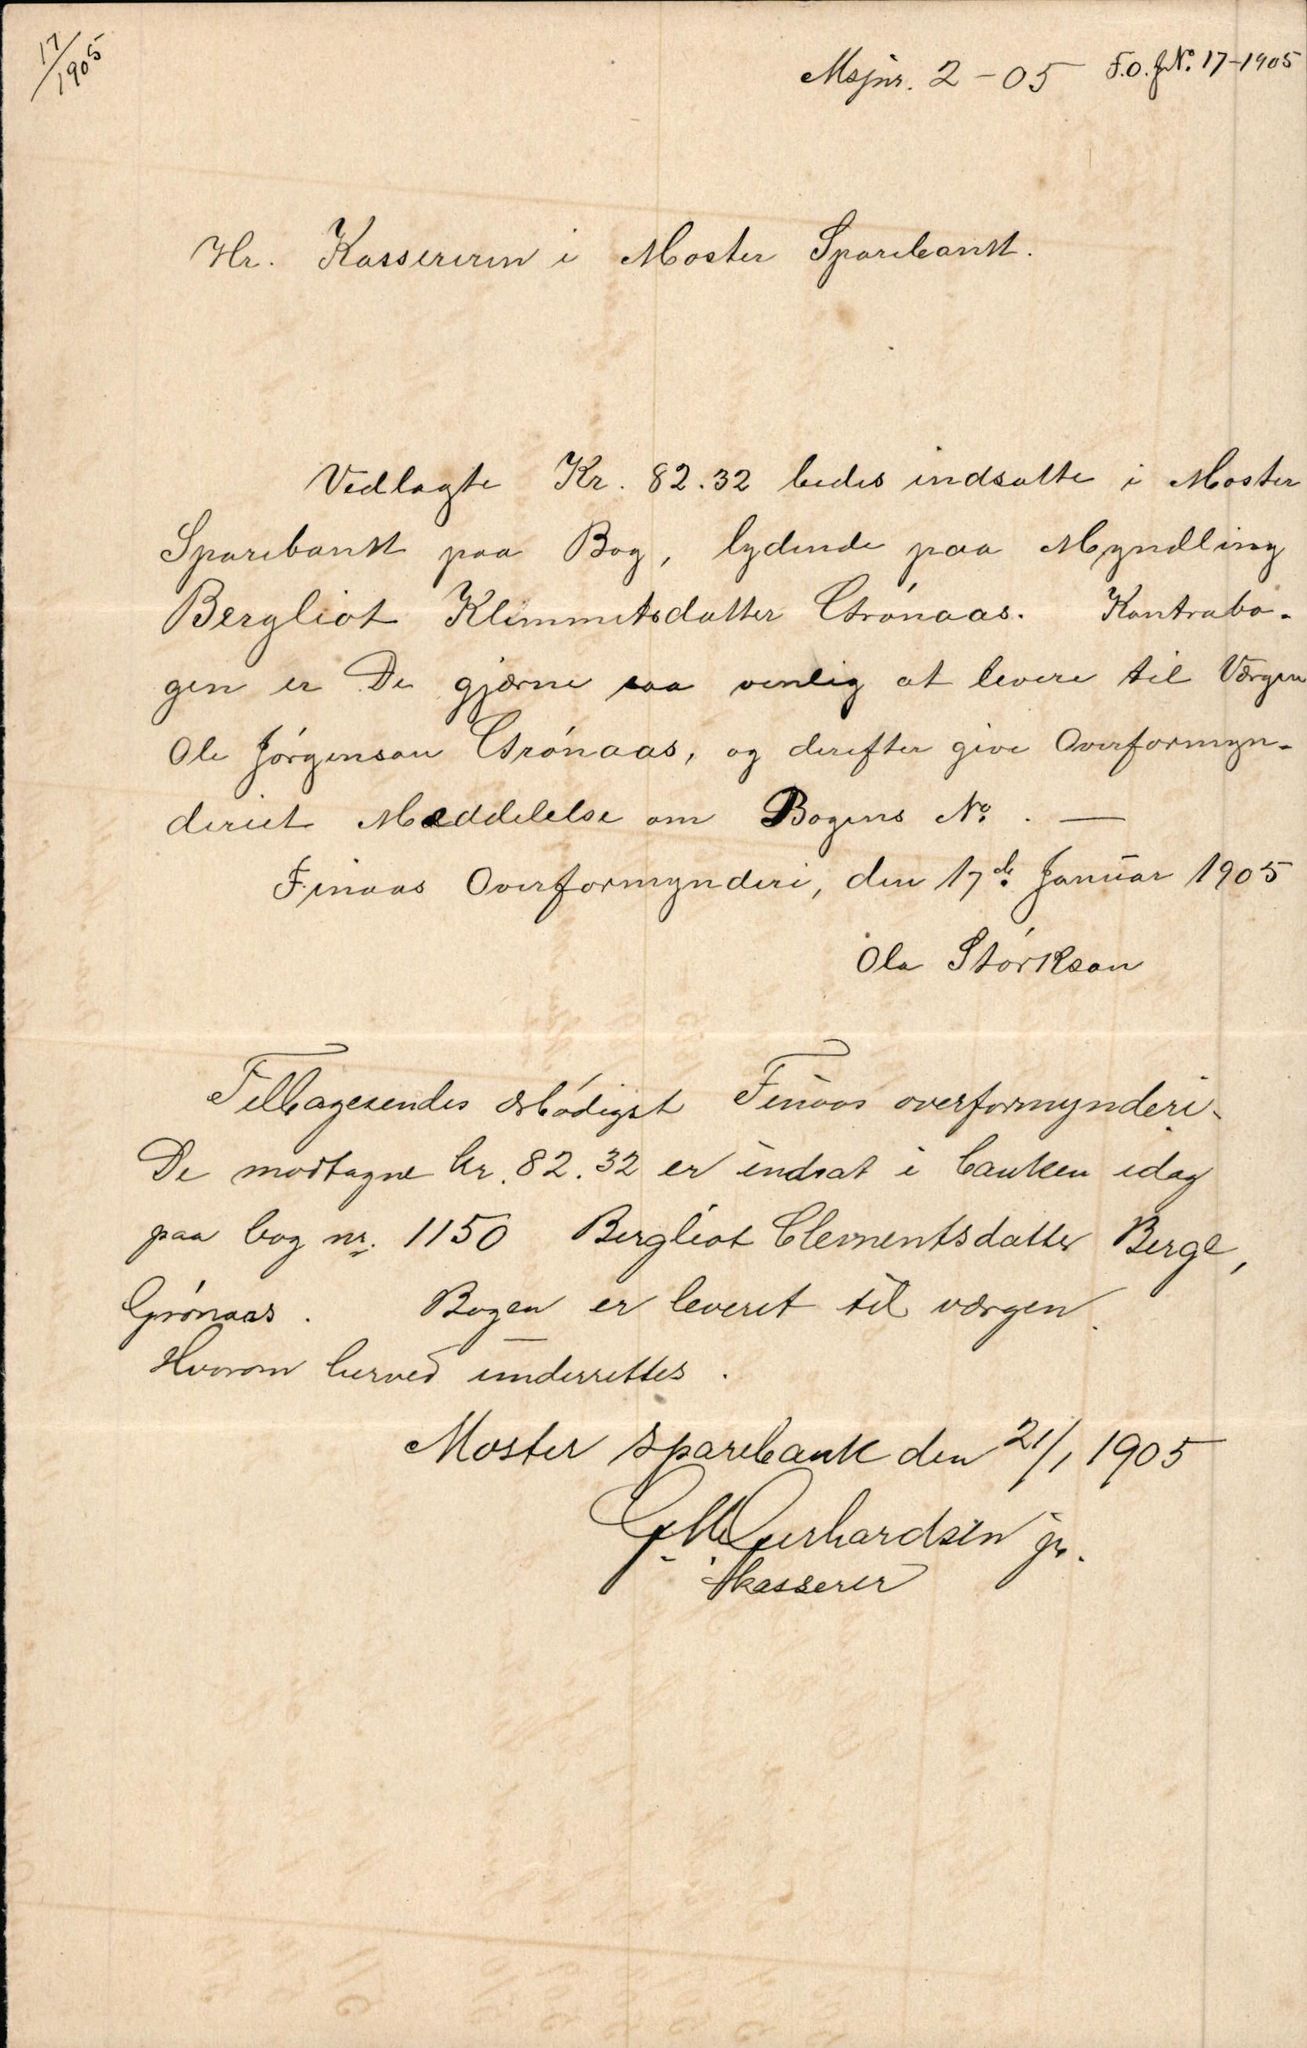 17/1905
Msjnr. 2-05 F.O.JNo. 17-1905
Hr. Kassereren i Moster Sparebank.
Vedlagte Kr. 82.32 bedes indsatte i Moster
Sparebank paa Bog, lydende paa Myndling
Bergliot Klemmetsdatter Grønaas. Kontrabo-
gen er De gjærne saa venlig at levere til Værgen
Ole Jørgenson Grønaas, og derefter give Overformyn-
deriet Meddelelse om Bogens No. —
Finaas Overformynderi, den 17de Januar 1905
Ola Størkson
Tilbagesendes ærbødigst Finaas overformynderi.
De modtagne kr. 82.32 er indsat i banken idag
paa bog nr. 1150 Bergliot Clementsdatter Berge,
Grønaas. Bogen er leveret til værgen.
Hvorom herved underrettes.
Moster sparebank den 21/1 1905
G.M. Gerhardsen jr.
kasserer